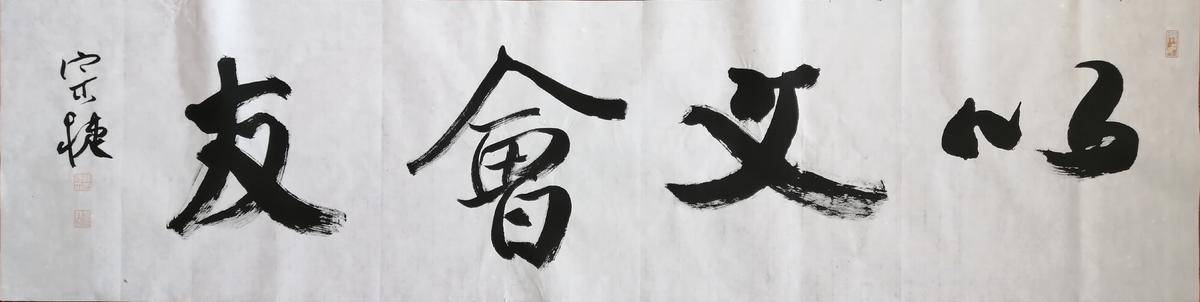 以文會友
宗捷